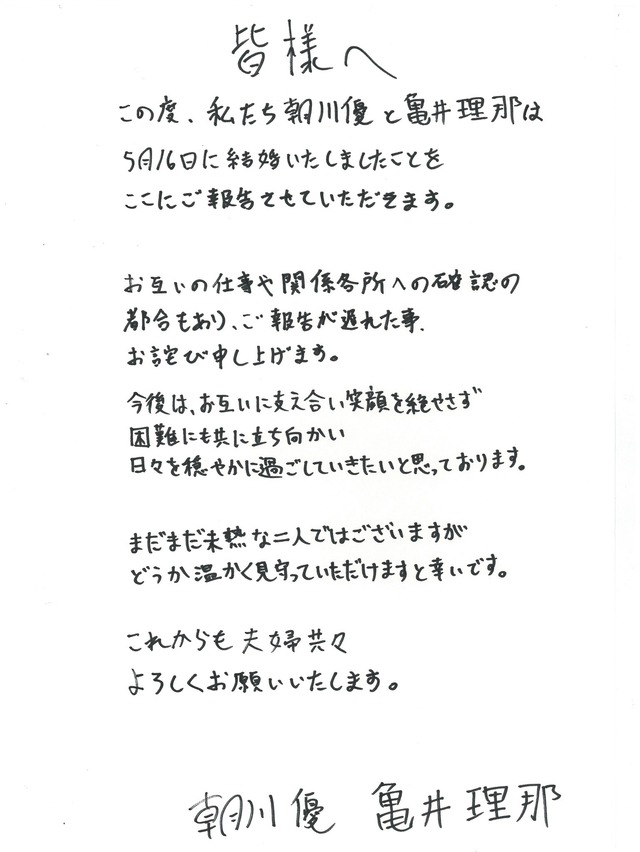 皆様へ
この度、私たち朝川優と亀井理那は
5月16日に結婚いたしましたことを
ここにご報告させていただきます。
お互いの仕事や関係各所への確認の
都合もあり、ご報告が遅れた事、
お詫び申し上げます。
今後は、お互いに支え合い笑顔を絶やさず
困難にも共に立ち向かい
日々を穏やかに過ごしていきたいと思っております。
まだまだ未熟な二人ではございますが
どうか温かく見守っていただけますと幸いです。
これからも夫婦共々
よろしくお願いいたします。
朝川優 亀井理那